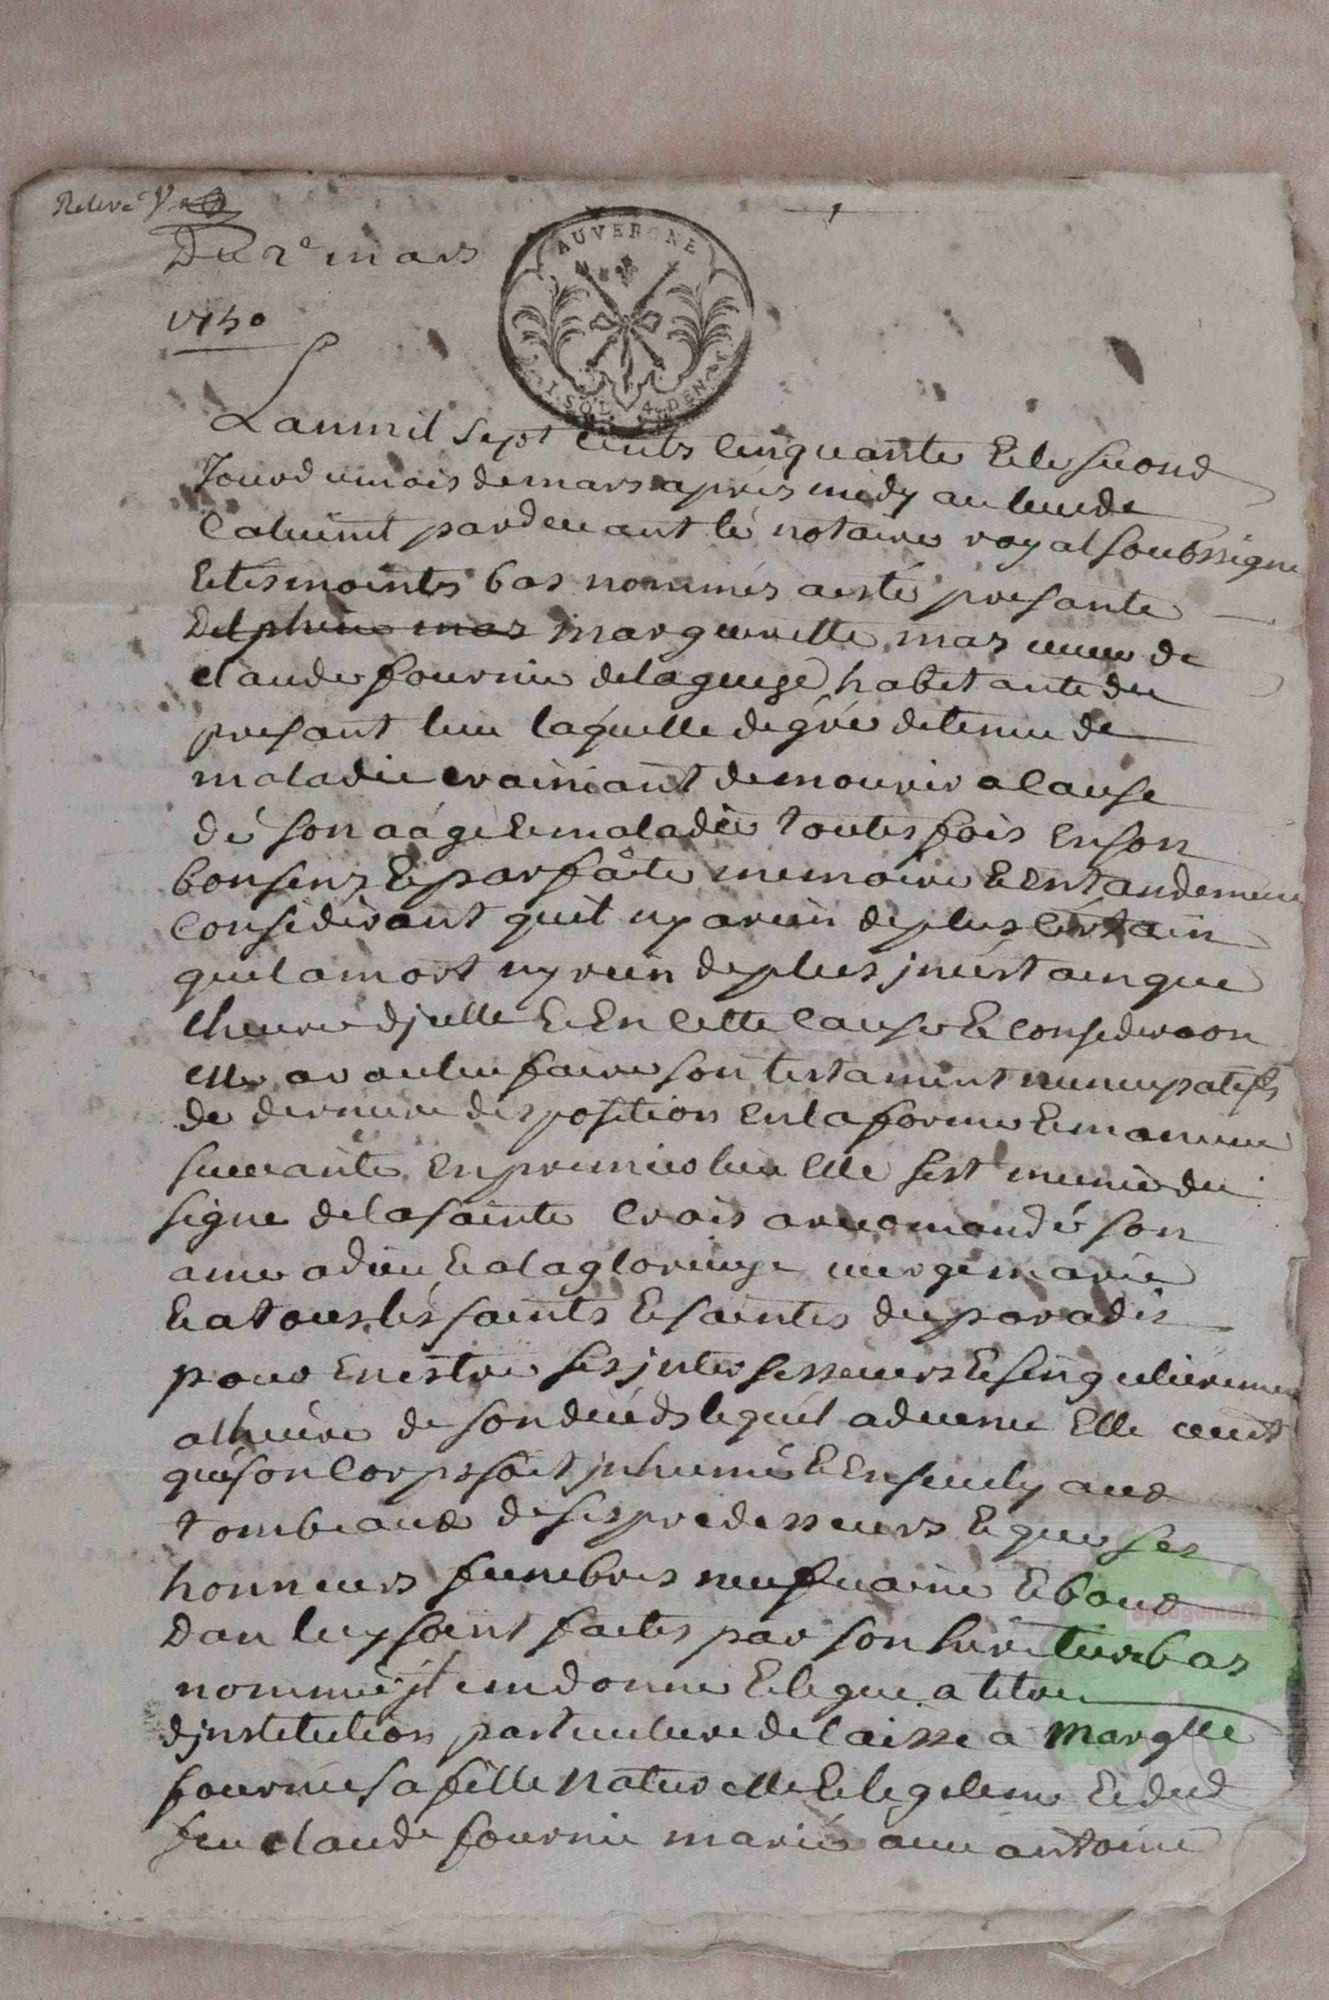 Releve
Du 2e mars
1750
AUVERGNE
1. SOL. 4. DEN.
Lan mil sept cents cinquante & le seCond
Jour du mois de mars apres midy au lieu de
pardevant le notaire royal soubsigne
& tesmoints bas nommés a esté presante
Delphine mas margueritte mas veuve de
claude fournier delaguese habitante du
presant lieu laquelle de gré detenue de
maladie crainiant de mourir a Cause
de son aage & maladie toutesfois en son
bon sens & parfaite memoire & entandement
Considerant quil ny a rien de plus certain
que la mort ny rien de plus jncertain que
lheure djcelle & En Cette Cause & Consideraon
elle a voulu faire son testament nuncupatifs
de derniere disposition en la forme & maniere
suivante En premier lieu Elle sest munie du
signe de la sainte Croix a recomandé son
ame a dieu & a la glorieuze vierge marie
& a tous les saints & saintes du paradis
pour En estre ses jntersesseurs & singulierement
a lheure de son deceds lequel advenu Elle veut
que son Corps soit jnhumé & Ensevely aux
tombeaux de ses predesseurs & que ses
honneurs funebres neufvaine & bout
dan luy soint faites par son heritier bas
nommé jtem donne & legue a titre
djnstitution particuliere delaisse a Margtte
fournier sa fille naturelle & legitime & dud
feu claude fournier mariée avec antoine
aprogemere